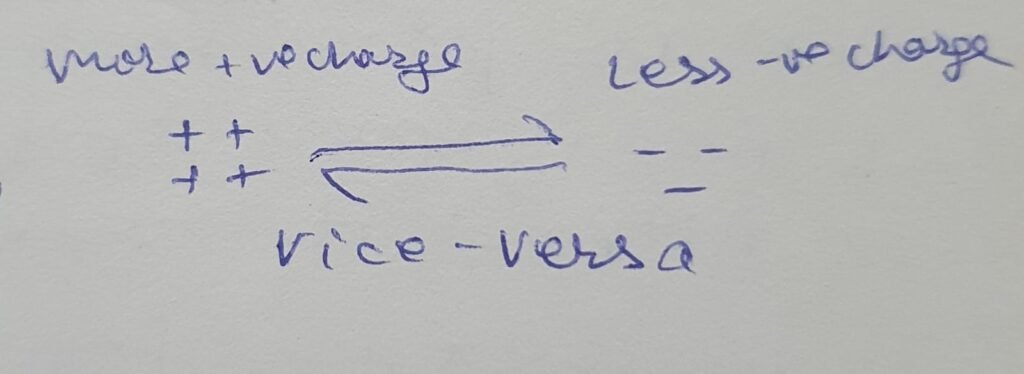 more +ve charge less -ve charge
+ + - -
+ + -
vice-versa